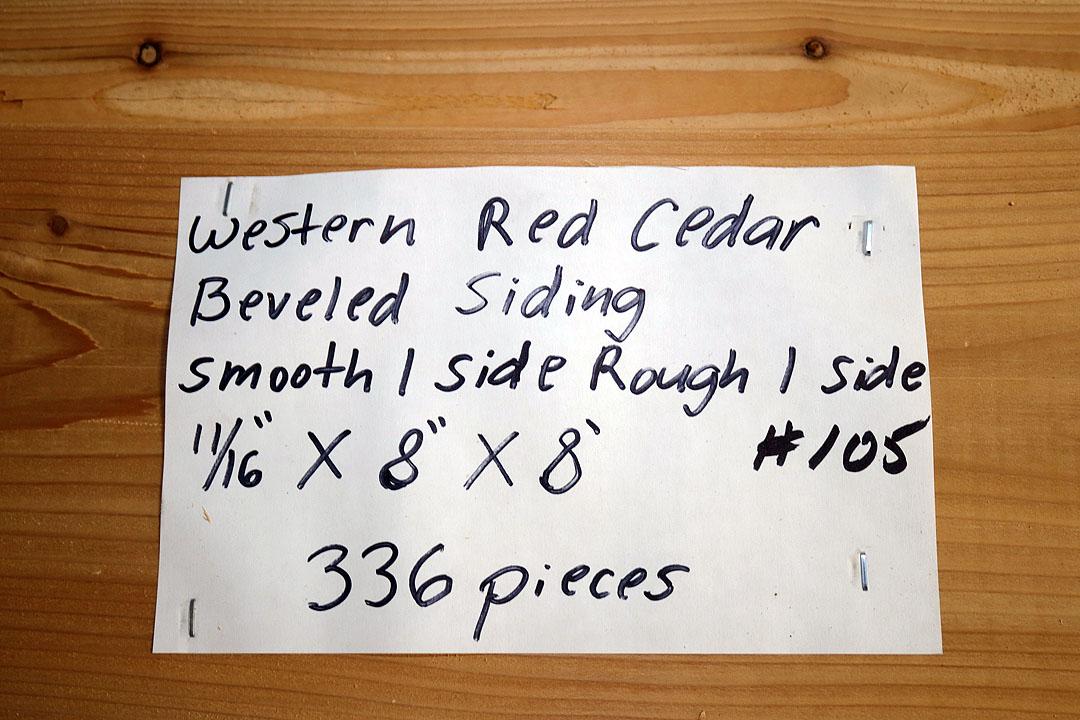 Western Red Cedar
Beveled Siding
smooth 1 side Rough 1 side
11/16" X 8" X 8' #105
336 pieces